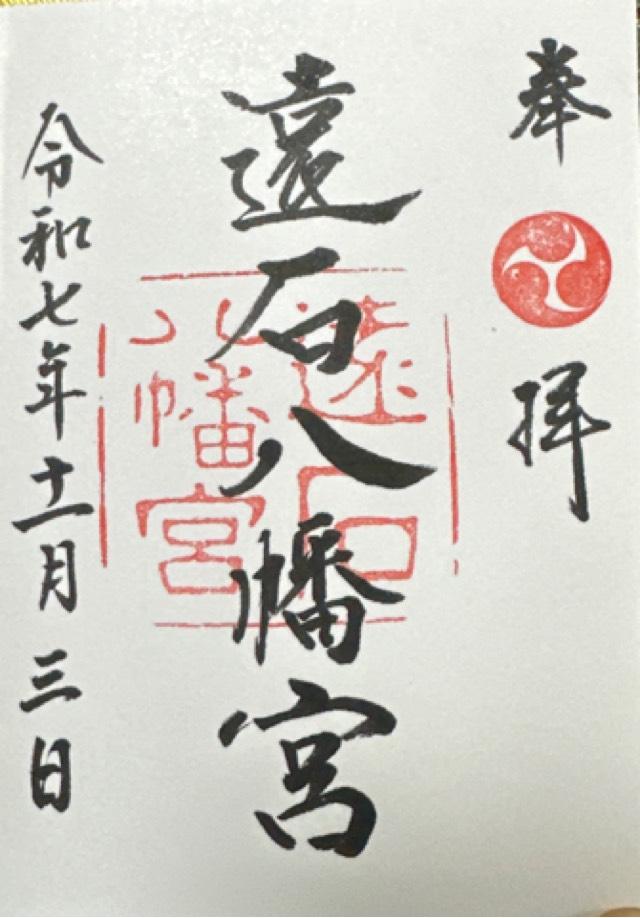 奉拝
遠石八幡宮
遠石
八幡宮
令和七年十一月三日